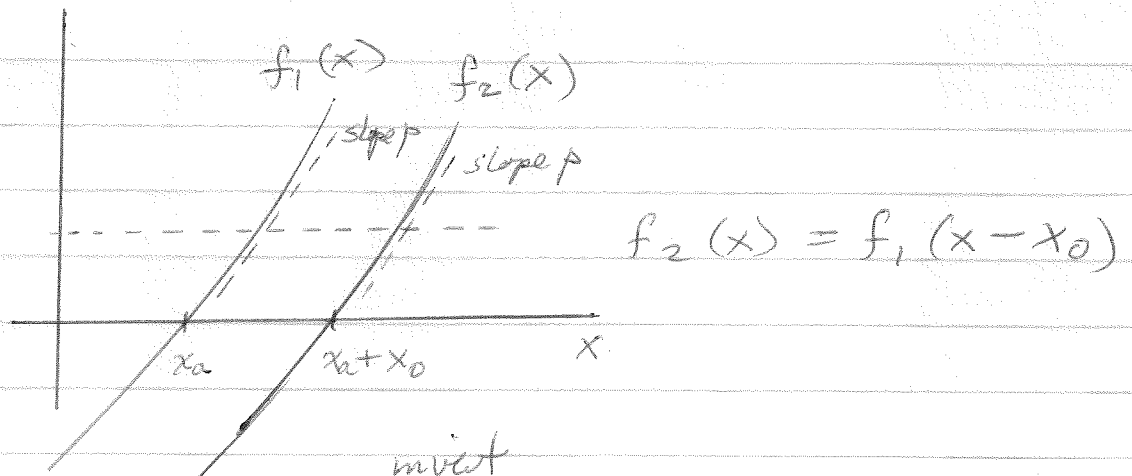 f₁(x)
f₂(x)
slope p
slope p
f₂(x) = f₁(x-x₀)
xₐ
xₐ+x₀
x
invert